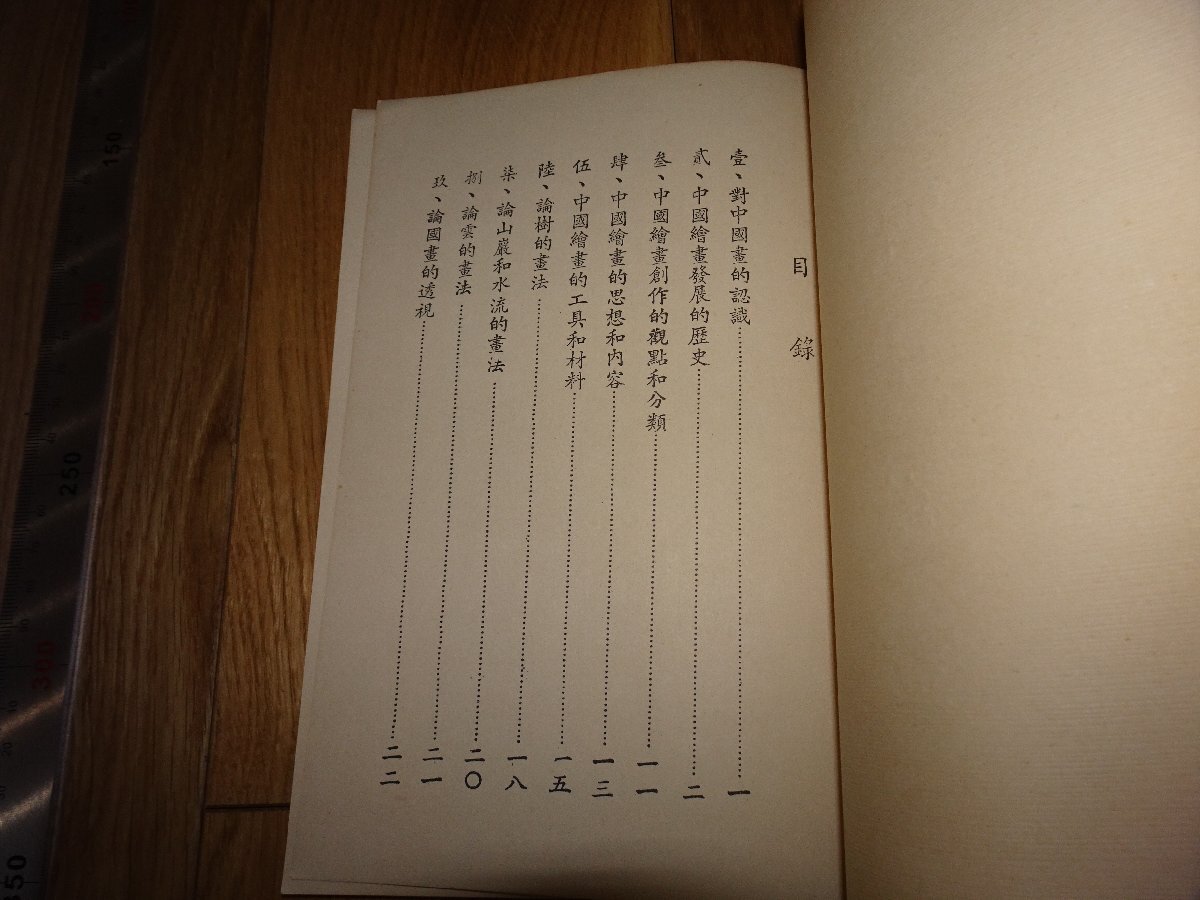 目錄
壹、對中國畫的認識……一
貳、中國繪畫發展的歷史……二
叁、中國繪畫創作的觀點和分類……一一
肆、中國繪畫的思想和內容……一三
伍、中國繪畫的工具和材料……一五
陸、論樹的畫法……一八
柒、論山巖和水流的畫法……二〇
捌、論雲的畫法……二一
玖、論國畫的透視……二二
150
250
300
350